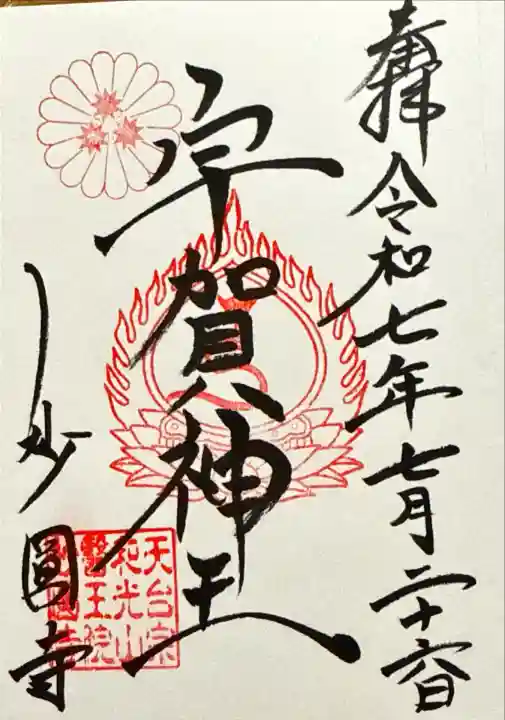 奉拝 令和七年七月二十六日
宇賀神王
妙圓寺
天台宗
和光山
醫王院
妙圓寺